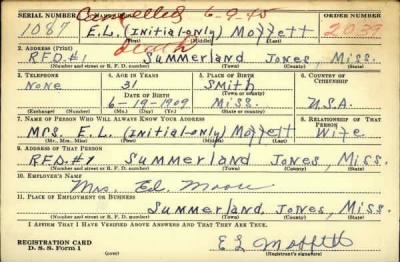 Cancelled 6-9-45
SERIAL NUMBER ORDER NUMBER
1087 E.L. (Initial-only) Moffett 2039
(First) (Middle) (Last)
death
2. ADDRESS (Print)
R.F.D.#1 Summerland Jones, Miss.
(Number and street or R. F. D. number) (Town) (County) (State)
3. TELEPHONE 4. AGE IN YEARS 5. PLACE OF BIRTH 6. COUNTRY OF CITIZENSHIP
None 31 Smith
DATE OF BIRTH (Town or county)
6-19-1909 Miss. U.S.A.
(Exchange) (Number) (Mo.) (Day) (Yr.) (State or country)
7. NAME OF PERSON WHO WILL ALWAYS KNOW YOUR ADDRESS 8. RELATIONSHIP OF THAT PERSON
Mrs. E.L. (Initial-only) Moffett Wife
(Mr., Mrs., Miss) (First) (Middle) (Last)
9. ADDRESS OF THAT PERSON
R.F.D.#1 Summerland Jones, Miss.
(Number and street or R. F. D. number) (Town) (County) (State)
10. EMPLOYER'S NAME
Mrs. Ed. Moore
11. PLACE OF EMPLOYMENT OR BUSINESS
Summerland, Jones, Miss.
(Number and street or R. F. D. number) (Town) (County) (State)
I AFFIRM THAT I HAVE VERIFIED ABOVE ANSWERS AND THAT THEY ARE TRUE.
REGISTRATION CARD
D. S. S. Form 1
E L Moffett
(Registrant's signature)